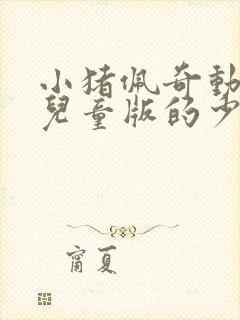 小猪佩奇動
兒童版的少
甯夏